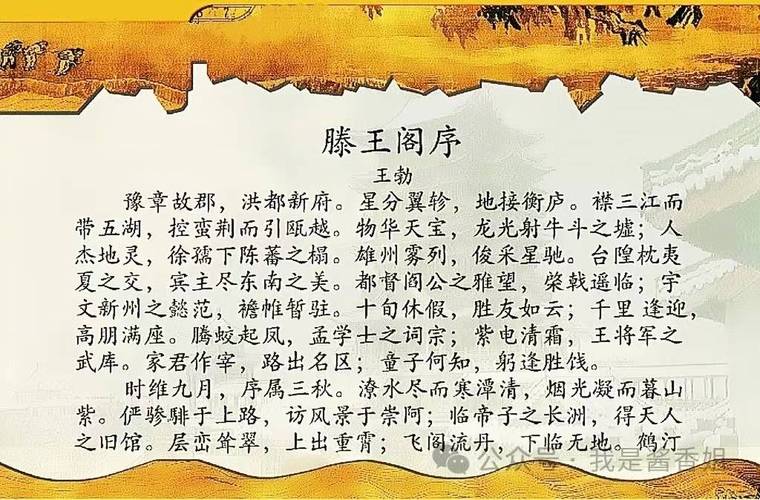 滕王阁序
王勃
豫章故郡，洪都新府。星分翼轸，地接衡庐。襟三江而
带五湖，控蛮荆而引瓯越。物华天宝，龙光射牛斗之墟；人
杰地灵，徐孺下陈蕃之榻。雄州雾列，俊采星驰。台隍枕夷
夏之交，宾主尽东南之美。都督阎公之雅望，棨戟遥临；宇
文新州之懿范，襜帷暂驻。十旬休假，胜友如云；千里 逢迎，
高朋满座。腾蛟起凤，孟学士之词宗；紫电清霜，王将军之
武库。家君作宰，路出名区；童子何知，躬逢胜饯。
时维九月，序属三秋。潦水尽而寒潭清，烟光凝而暮山
紫。俨骖騑于上路，访风景于崇阿；临帝子之长洲，得天人
之旧馆。层峦耸翠，上出重霄；飞阁流丹，下临无地。鹤汀
公众号·我是酱香姐